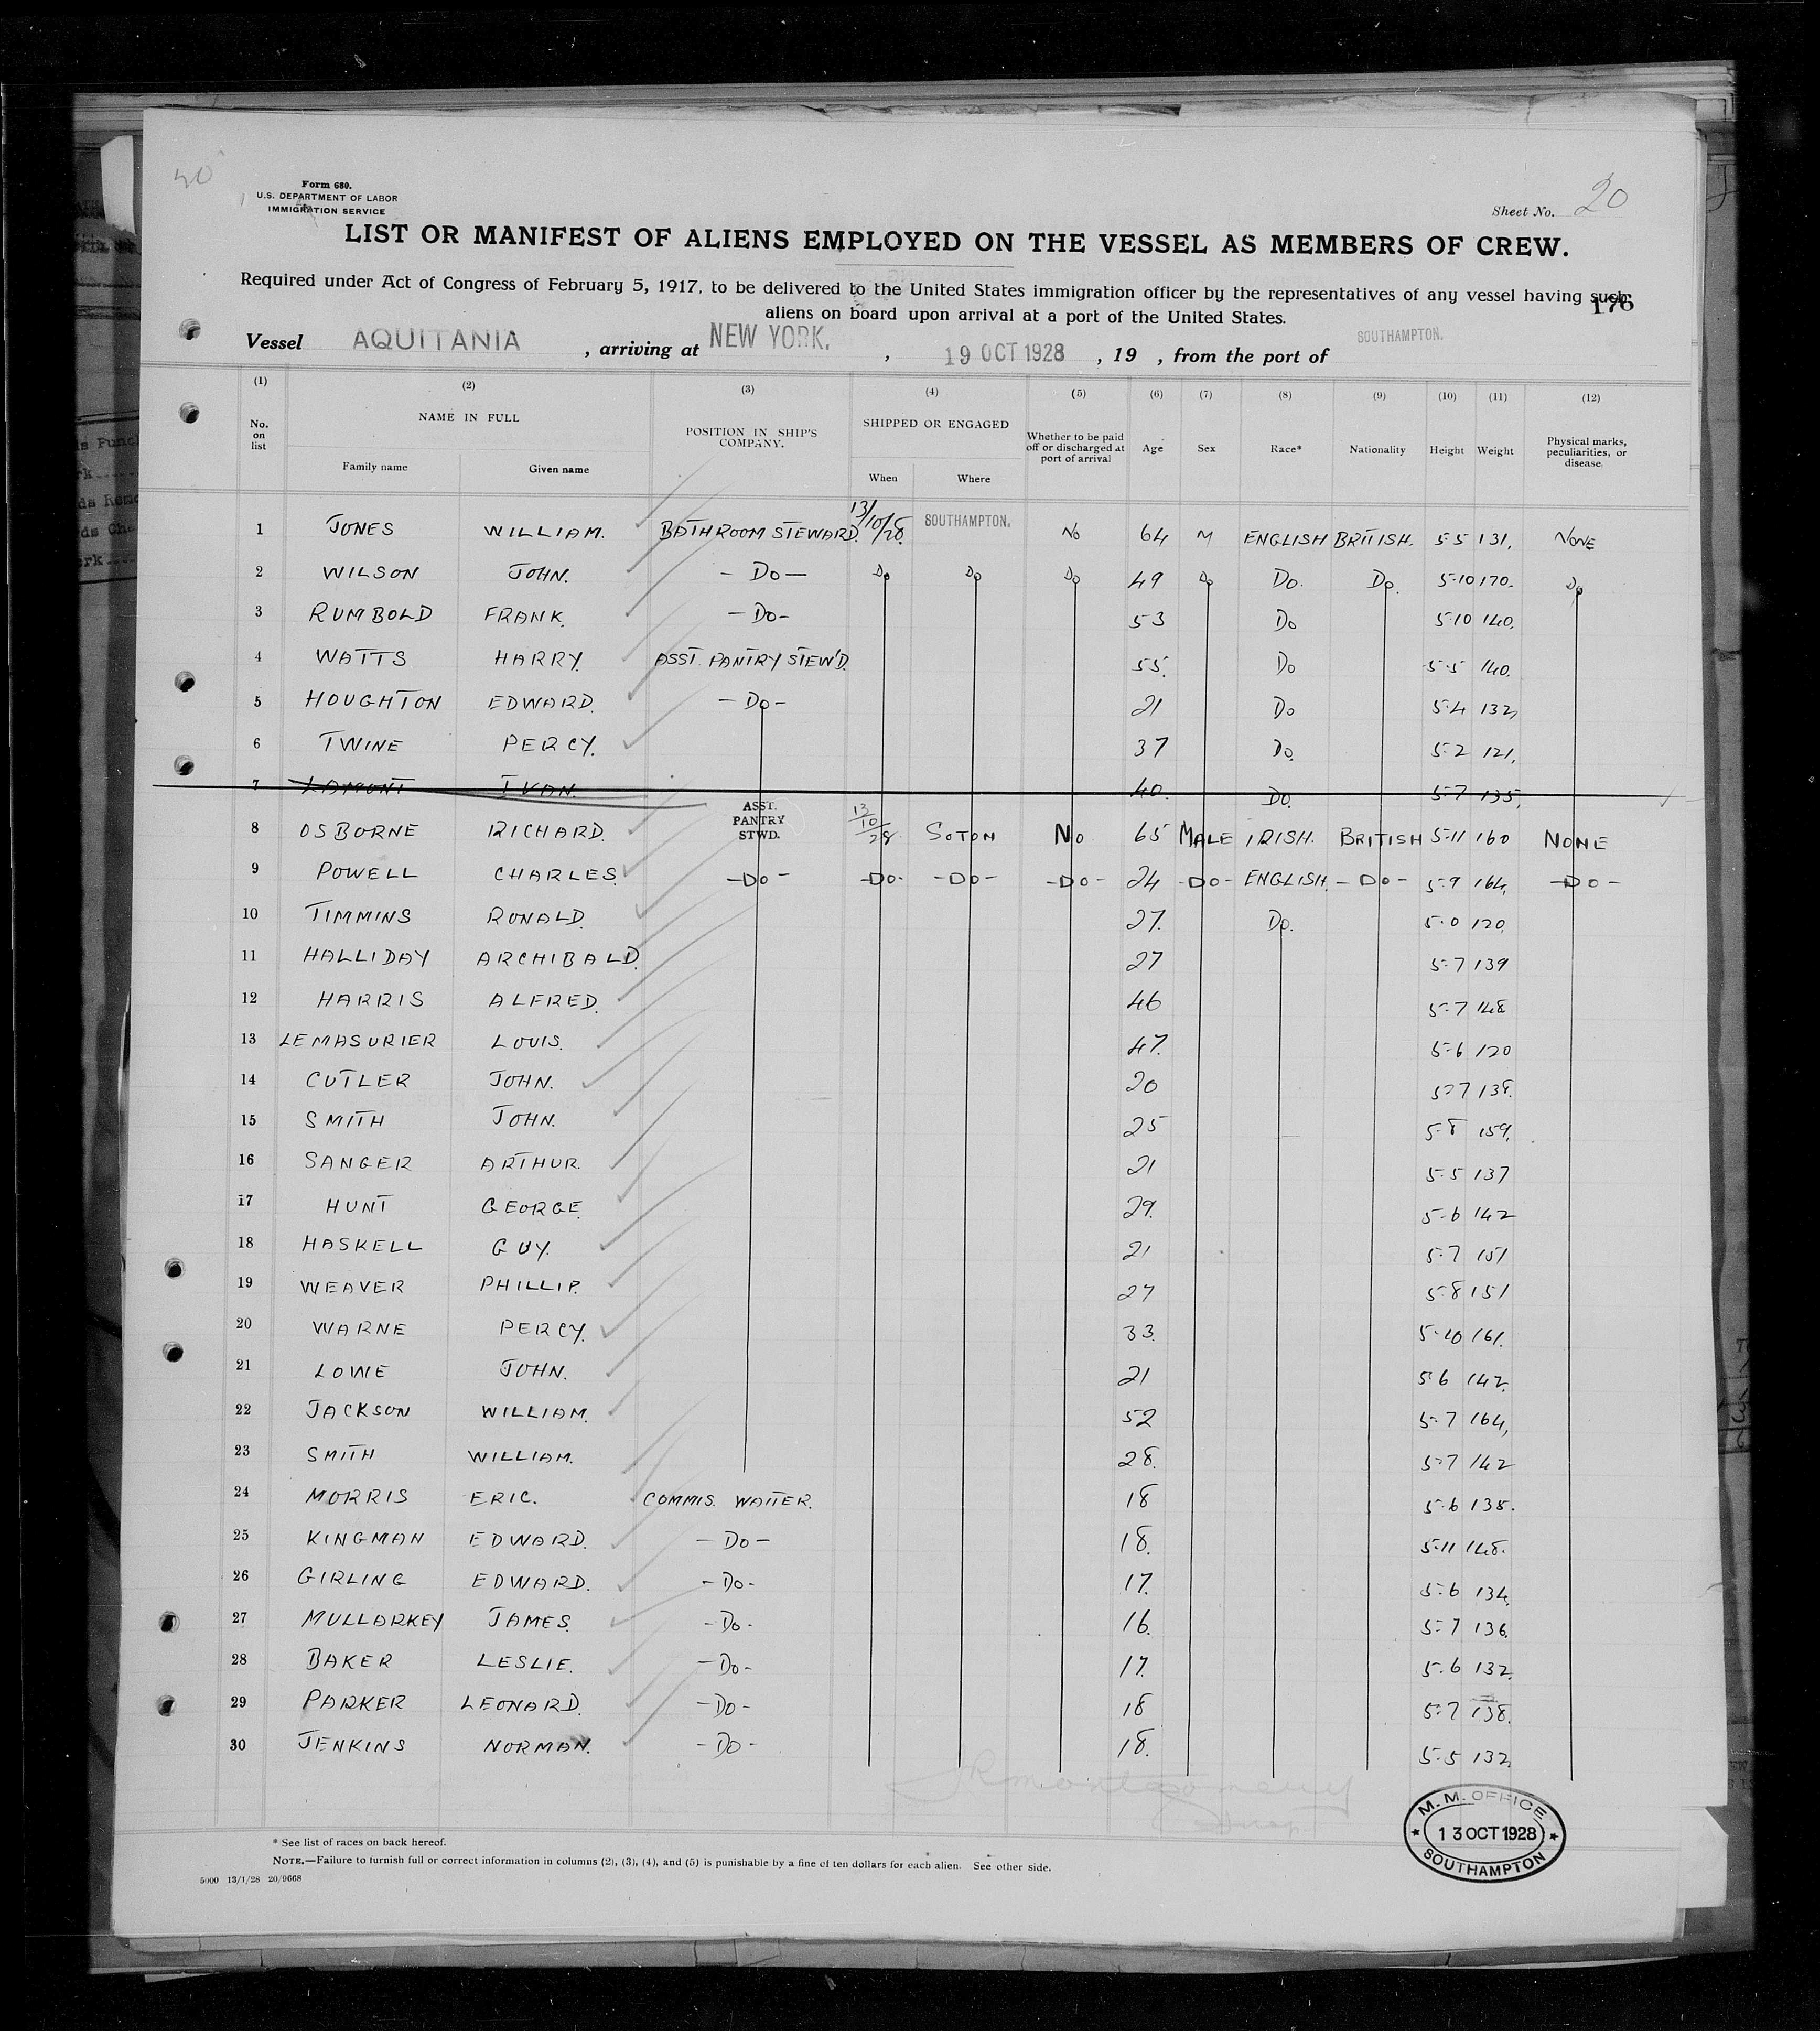 40
Form 680.
U.S. DEPARTMENT OF LABOR
IMMIGRATION SERVICE
Sheet No. 20
LIST OR MANIFEST OF ALIENS EMPLOYED ON THE VESSEL AS MEMBERS OF CREW.
Required under Act of Congress of February 5, 1917, to be delivered to the United States immigration officer by the representatives of any vessel having such
aliens on board upon arrival at a port of the United States.
176
Vessel AQUITANIA , arriving at NEW YORK. , 19 OCT 1928 , 19 , from the port of SOUTHAMPTON.
(1) (2) (3) (4) (5) (6) (7) (8) (9) (10) (11) (12)
No. on list NAME IN FULL Family name Given name POSITION IN SHIP'S COMPANY. SHIPPED OR ENGAGED When Where Whether to be paid off or discharged at port of arrival Age Sex Race* Nationality Height Weight Physical marks, peculiarities, or disease.
1 JONES WILLIAM. BATHROOM STEWARD. 13/10/28. SOUTHAMPTON. No 64 M ENGLISH BRITISH. 5-5 131. NONE
2 WILSON JOHN. - Do - Do Do Do 49 Do Do. Do. 5-10 170. Do
3 RUMBOLD FRANK. - Do - 53 Do 5-10 140.
4 WATTS HARRY. ASST. PANTRY STEW'D. 55. Do 5-5 140.
5 HOUGHTON EDWARD. - Do - 21 Do 5-4 132,
6 TWINE PERCY. 37 Do. 5-2 121.
7 LAMONT IVAN. 40. Do. 5-7 135.
8 OSBORNE RICHARD. ASST. PANTRY STWD. 13/10/28 SOTON No 65 MALE IRISH. BRITISH 5-11 160 NONE
9 POWELL CHARLES. - Do - - Do - - Do - - Do - 24 - Do - ENGLISH. - Do - 5-9 164. - Do -
10 TIMMINS RONALD. 27. Do. 5-0 120.
11 HALLIDAY ARCHIBALD. 27 5-7 139
12 HARRIS ALFRED. 46 5-7 148
13 LEMASURIER LOUIS. 47. 5-6 120
14 CUTLER JOHN. 20 5-7 138.
15 SMITH JOHN. 25 5-8 159.
16 SANGER ARTHUR. 21 5-5 137
17 HUNT GEORGE. 29. 5-6 142
18 HASKELL GUY. 21 5-7 151
19 WEAVER PHILLIP. 27 5-8 151
20 WARNE PERCY. 33. 5-10 161.
21 LOWE JOHN. 21 5-6 142.
22 JACKSON WILLIAM. 52 5-7 164,
23 SMITH WILLIAM. 28. 5-7 142
24 MORRIS ERIC. COMMIS. WAITER. 18 5-6 135.
25 KINGMAN EDWARD. - Do - 18. 5-11 148.
26 GIRLING EDWARD. - Do - 17. 5-6 134.
27 MULLARKEY JAMES. - Do - 16. 5-7 136.
28 BAKER LESLIE. - Do - 17. 5-6 132.
29 PARKER LEONARD. - Do - 18 5-7 138.
30 JENKINS NORMAN. - Do - 18. 5-5 132.
M. M. OFFICE
13 OCT 1928
SOUTHAMPTON
* See list of races on back hereof.
NOTE.—Failure to furnish full or correct information in columns (2), (3), (4), and (5) is punishable by a fine of ten dollars for each alien. See other side.
5000 13/1/28 20/9668